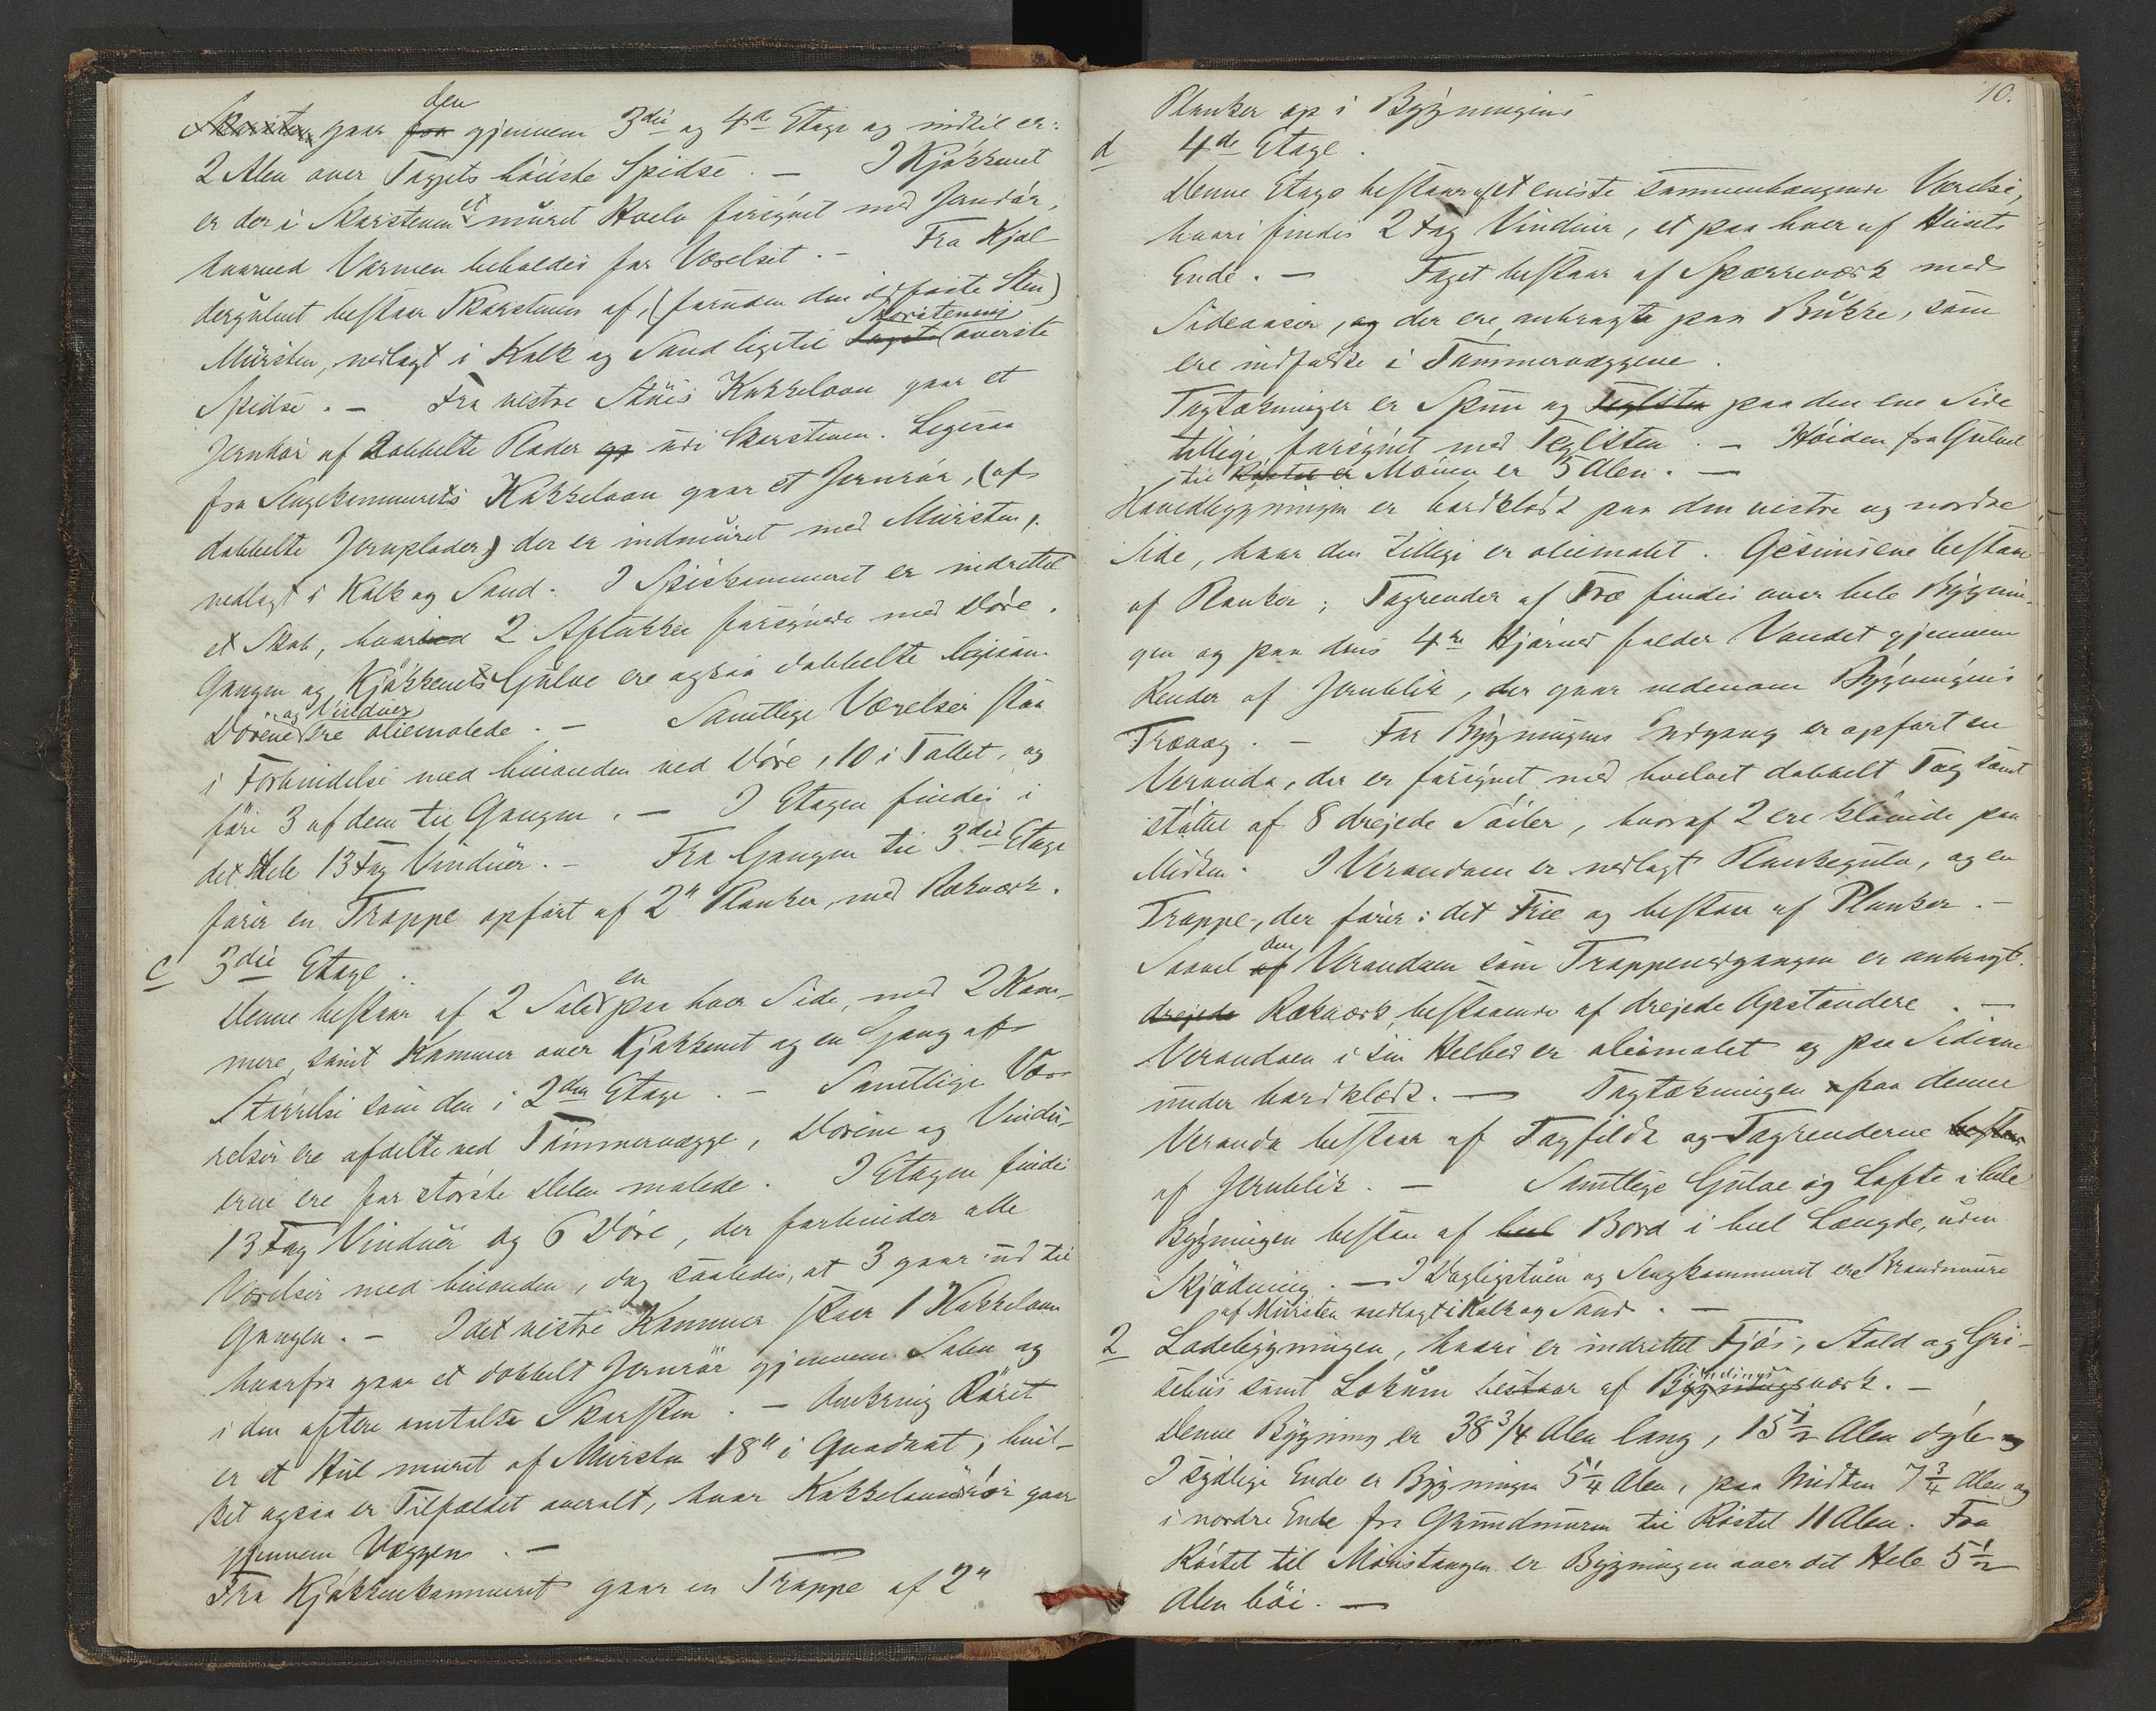 Skorsten gaar fra den gjennem 3die og 4de Etage og indtil en:
2 Alen over Taggets höieste Spidse. — I Kjökkenet
er der i Skorstenen et muret Hvelv forsÿnet med Jerndör,
hvorved Varmen beholdes for Værelset. — Fra Kjæl
dergulvet bestaar Skorstenen af, (foruden den ildfaste Sten)
Mursten, nedlagt i Kalk og Sand ligetil Tagets Skorstenens överste
Spidse. — Fra vestre Stues Kakkelovn gaar et
Jernrör af dobbelte Plader op ud i Skorstenen. Ligesaa
fra Sengekammerets Kakkelovn gaar et Jernrör, (af
dobbelte Jernplader) der er indmuret med Mursten,
nedlagt i Kalk og Sand. I Spiskammeret er indrettet
et Skab, hvori 2 Aflukker forsÿnede med Döre.
Gangen og Kjökkenets Gulve ere ogsaa dobbelte ligesom
Dörene og Vinduer ere oliemalede. — Samtlige Værelser staa
i Forbindelse med hinanden ved Döre, 10 i Tallet, og
före 3 af dem til Gangen. — I Etagen findes i
det Hele 13 Fag Vinduer. — Fra Gangen til 3die Etage
förer en Trappe opfört af 2" Planker, med Rækværk.
c 3die Etage.
Denne bestaar af 2 Sale en paa hver Side, med 2 Kam-
mere, samt Kammer over Kjökkenet og en Gang af
Störrelse som den i 2den Etage. — Samtlige Væ-
relser ere afdelte ved Tömmervægge, Dörene og Vindu-
erne ere for störste Delen malede. I Etagen findes
13 Fag Vinduer og 6 Döre, der forbinder alle
Værelser med hinanden, dog saaledes, at 3 gaar ud til
Gangen. — I det vestre Kammer staar 1 Kakkelovn
hvorfra gaar et dobbelt Jernrör gjennem Salen og
i den oftere omtalte Skorsten. — Omkring Röret
er et Hul muret af Mursten 18" i Quadrat, hvil-
ket ogsaa er Tilfældet overalt, hvor Kakkelovnsrör gaar
gjennem Væggen. —
Fra Kjökkenkammeret gaar en Trappe af 2"
10.
Planker op i Bÿgningens
d 4de Etage.
Denne Etage bestaar af et eneste sammenhængende Værelse,
hvori findes 2 Fag Vinduer, et paa hver af Husets
Ende. — Taget bestaar af Spærreværk med
Sideaaser, og der ere anbragte paa Bukke, som
ere indfældte i Tömmervæggene.
Tagtækningen er Spon og Teglsten paa den ene Side
tillige forsÿnet med Teglsten. — Höiden fra Gulvet
til Röstet er Mönen er 5 Alen. —
Hovedbygningen er bordklædt paa den vestre og nordre
Side, hvor den tillige er oliemalet. Gesimsene bestaar
af Planker; Tagrender af Træ findes over hele Bÿgnin-
gen og paa dens 4re Hjörner falder Vandet gjennem
Render af Jernblik, der gaar nedenom Bÿgningens
Trævæg. — For Bÿgningens Indgang er opfört en
Veranda, der er forsÿnet med hvelvet dobbelt Tag samt
stöttet af 8 drejede Söiler, hvoraf 2 ere kløvede paa
Midten. I Verandaen er nedlagt Plankegulv, og en
Trappe, der förer i det Frie og bestaar af Planker. —
Saavel af den Verandaen som Trappenedgangen er anbragt
drejede Rækværk bestaaende af drejede Opstandere. —
Verandaen i sin Helhed er oliemalet og paa Siderne
under bordklædt. — Tagtækningen paa denne
Veranda bestaar af Tagfildt og Tagrenderne bestaar
af Jernblik. — Samtlige Gulve og Lofte i hele
Bÿgningen bestaar af heel Bord i heel Længde, uden
Skjödning. — I Dagligstuen og Sengkammeret ere Brandmure
af Mursten nedlagt i Kalk og Sand. —
2 Ladebygningen, hvori er indrettet Fjös, Stald og Gri-
sehus samt Lokum bestaar af Bÿgningsværk. —
Denne Bÿgning er 38 3/4 Alen lang, 15 1/2 Alen dyb og
I sydlige Ende er Bÿgningen 5 1/4 Alen, paa Midten 7 3/4 Alen og
i nordre Ende fra Grundmuren til Röstet 11 Alen. Fra
Röstet til Mönstangen er Bygningen over det Hele 5 1/2
Alen höi. —